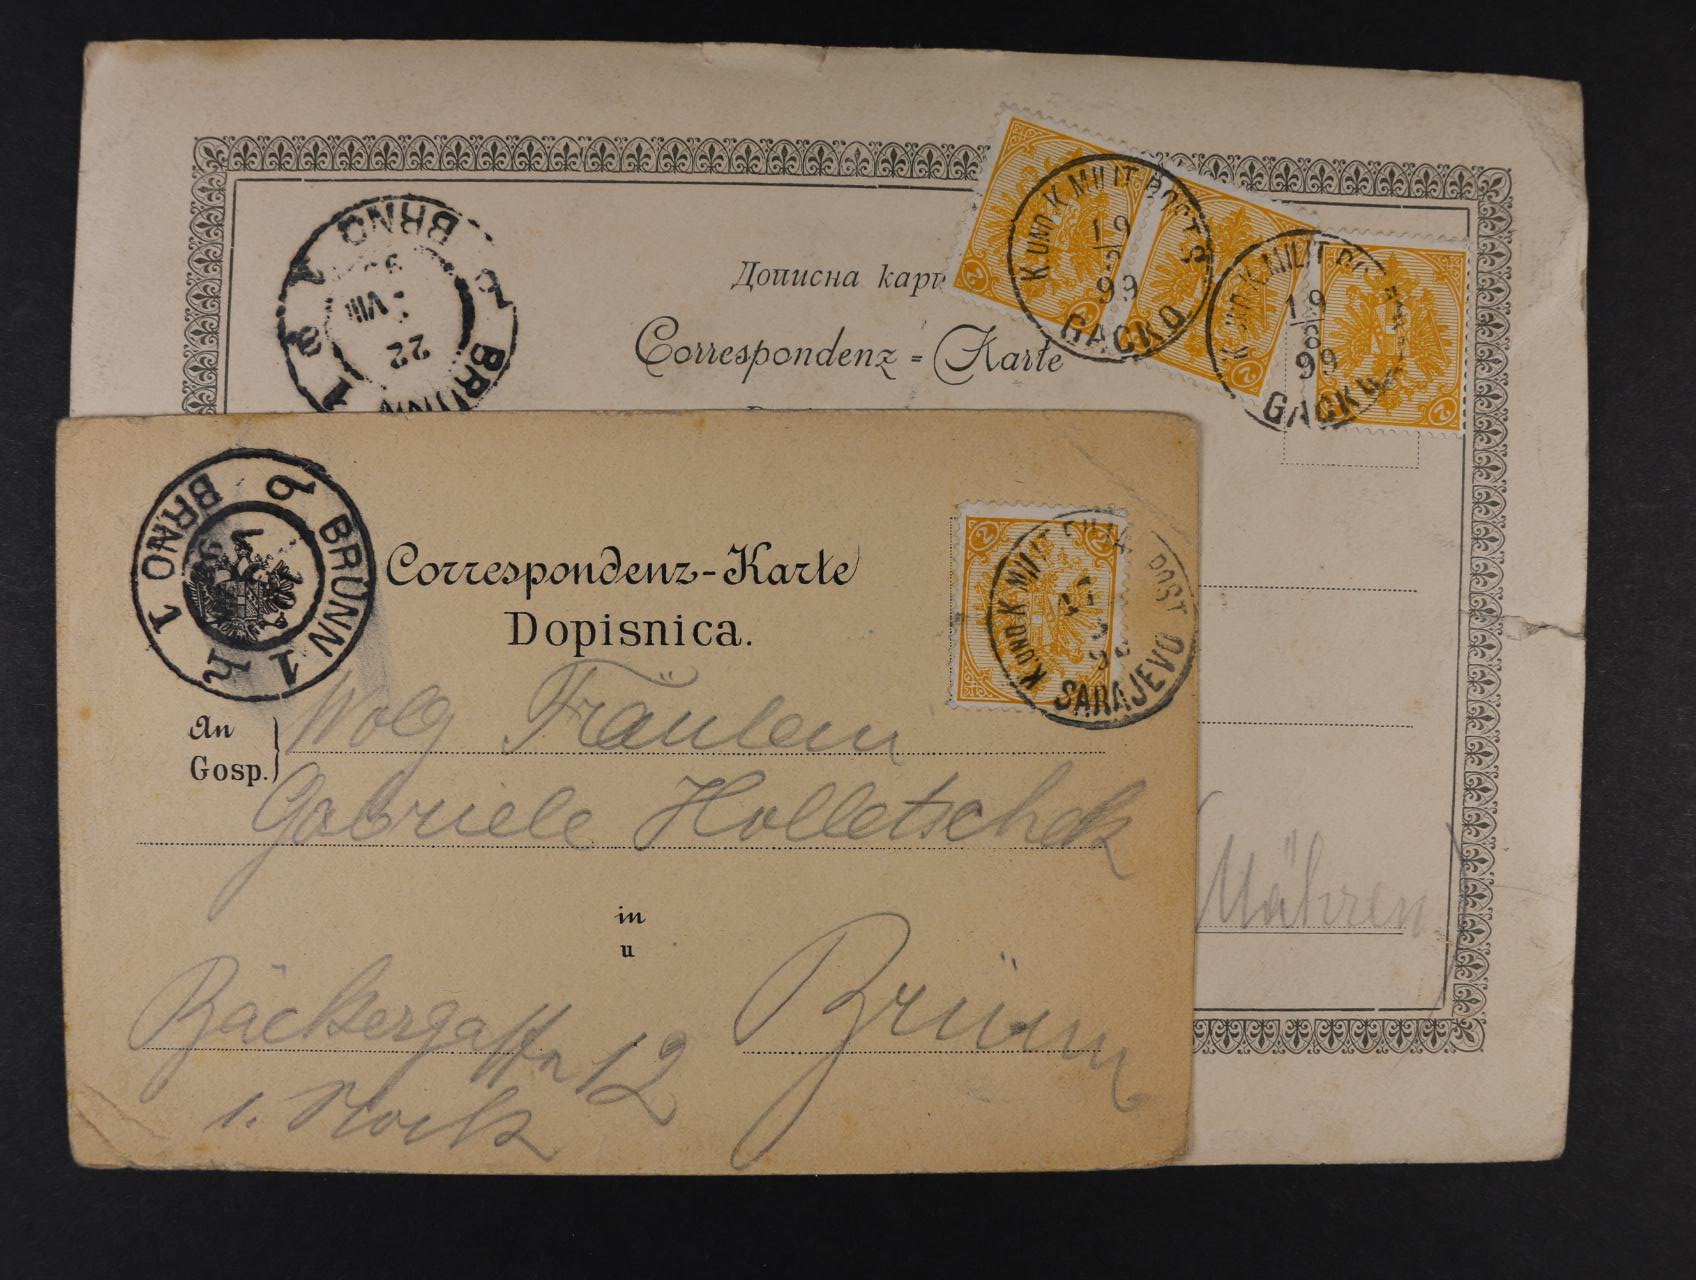 Дописна
Correspondenz = Karte
K. UND K. MILIT. POST
19
8
99
GACKO
K. UND K. MILIT. PO
19
8
99
GACKO
2
2
2
BRÜNN
BRNO
1
22
VIII
Correspondenz-Karte
Dopisnica.
BRÜNN 1
BRNO 1
2
2
2
K. UND K. MILIT. POST
SARAJEVO
An
Gosp.
Wolg Fräulein
Gabriele Holletschek
in
u
Brünn
Bäckergasse 12
1. Stock
Mähren